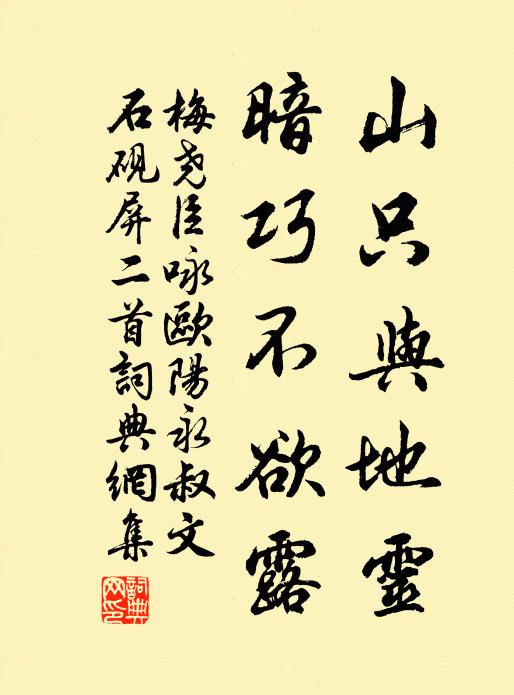 山只與地靈
暗巧不欲露
梅尧臣咏歐陽永叔文
石硯屏二首詞典網集
詞典网印